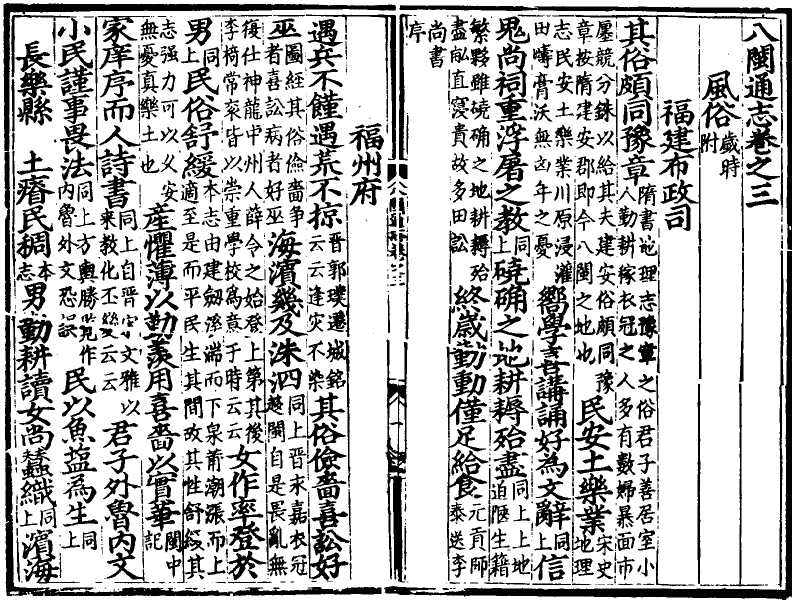 八閩通志卷之三
風俗歲時附
福建布政司
其俗頗同豫章隋書地理志豫章之俗君子善居室小人勤耕稼衣冠之人多有數婦暴面市
廛競分銖以給其夫建安俗頗同豫章按隋建安郡即今八閩之地也民安土樂業宋史地理
志民安土樂業川原浸灌田疇膏沃無凶年之憂嚮學喜講誦好為文辭同上信
鬼尚祠重浮屠之教同上磽确之地耕耨殆盡同上土地迫陿生籍
繁夥雖磽确之地耕耨殆盡畝直寖貴故多田訟終歲勤動僅足給食元貢師泰送李
尚書序
福州府
遇兵不饉遇荒不掠晉郭璞遷城銘云云逢災不染其俗儉嗇喜訟好
巫圖經其俗儉嗇爭者喜訟病者好巫海濱幾及洙泗同上晉永嘉衣冠趨閩自是畏亂無
復仕神龍中州人薛令之始登上第其後李椅常衮皆以崇重學校為意于時云云女作率登於
男同上民俗舒緩本志由建劍溪湍而下泉莆潮漲而上適至是而平民生其間故其性舒緩其
志强力可以久安無憂真樂土也產懼薄以勤羨用喜嗇以實華閩中記
家庠序而人詩書同上自晉宋文雅以來教化丕變云云君子外魯内文
小民謹事畏法同上方輿勝覽作内魯外文恐誤民以魚鹽為生同上
長樂縣土瘠民稠本志男勤耕讀女尚蠶織同上濱海